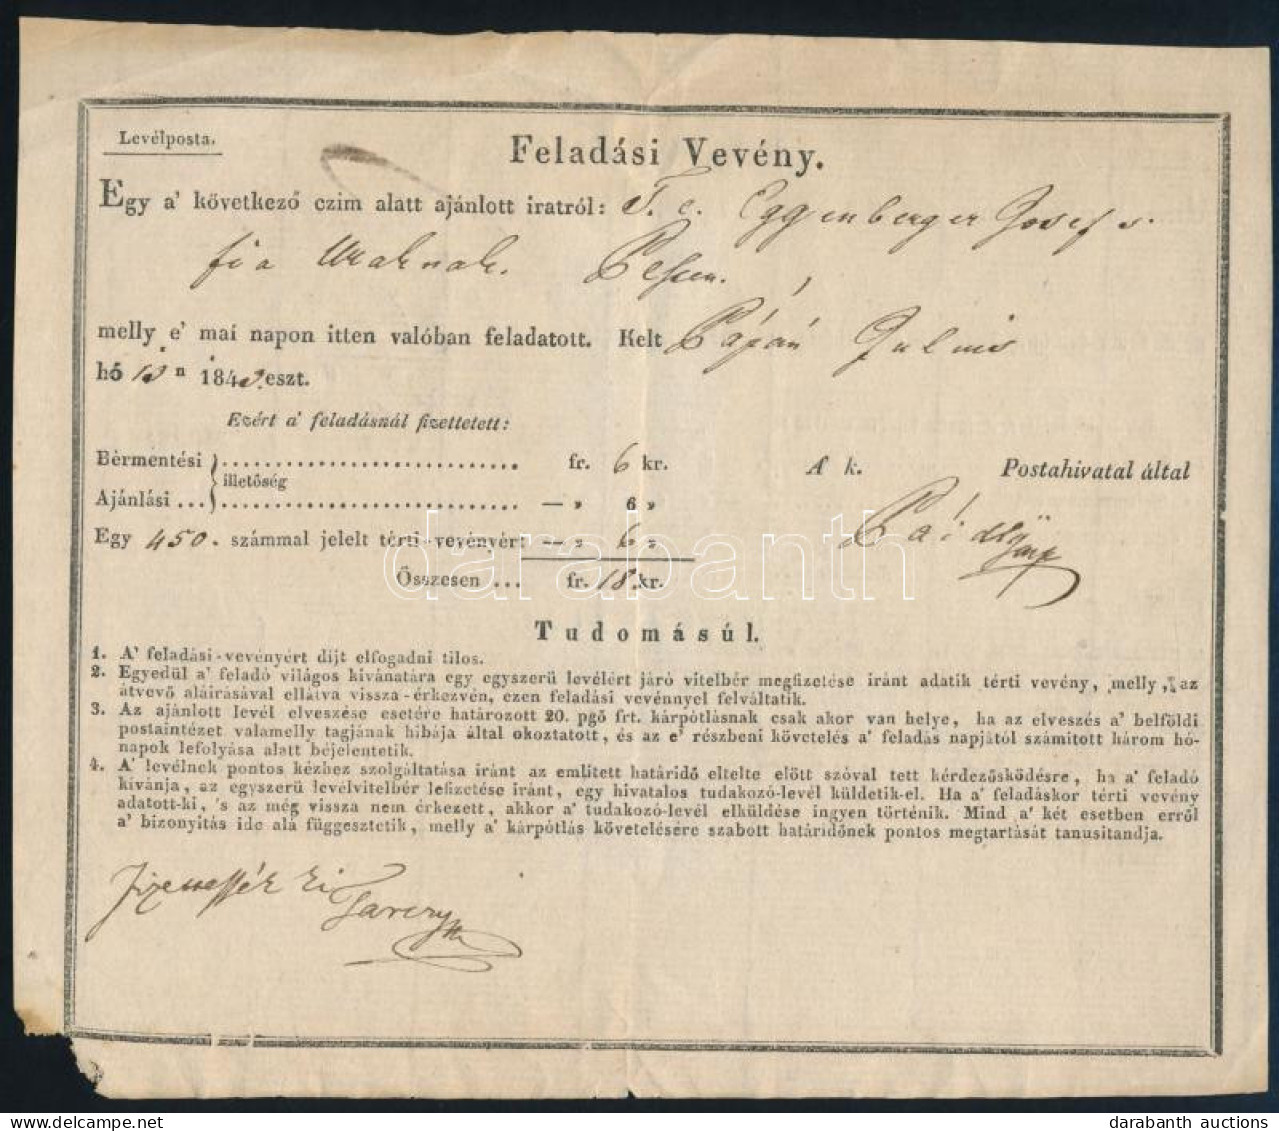 Levélposta.
Feladási Vevény.
Egy a' következő czim alatt ajánlott iratról: T. c. Eggenberger Josef s.
fia Uraknak. Pesten.
melly e' mai napon itten valóban feladatott. Kelt Pápán Julius
hó 13 n 1848. eszt.
Ezért a' feladásnál fizettetett:
Bérmentési } .............................. fr. 6 kr. A' k. Postahivatal által
illetőség
Ajánlási ... } .............................. — „ 6 „
Egy 450. számmal jelelt térti-vevényért — „ 6 „
Összesen ... fr. 18. kr.
darabanth
Tudomásúl.
1. A' feladási-vevényért díjt elfogadni tilos.
2. Egyedül a' feladó világos kívánatára egy egyszerű levélért járó vitelbér megfizetése iránt adatik térti vevény, melly, az
átvevő aláirásával ellátva vissza-érkezvén, ezen feladási vevénnyel felváltatik.
3. Az ajánlott levél elveszése esetére határozott 20. pgő frt. kárpótlásnak csak akor van helye, ha az elveszés a' belföldi
postaintézet valamelly tagjának hibája által okoztatott, és az e' részbeni követelés a' feladás napjától számított három hó-
napok lefolyása alatt béjelentetik.
4. A' levélnek pontos kézhez szolgáltatása iránt az említett határidő eltelte előtt szóval tett kérdezősködésre, ha a' feladó
kívánja, az egyszerű levélvitelbér lefizetése iránt, egy hivatalos tudakozó-levél küldetik-el. Ha a' feladáskor térti vevény
adatott-ki, 's az még vissza nem érkezett, akkor a' tudakozó-levél elküldése ingyen történik. Mind a' két esetben erről
a' bizonyítás ide alá függesztetik, melly a' kárpótlás követelésére szabott határidőnek pontos megtartását tanusítandja.
darabanth auctions